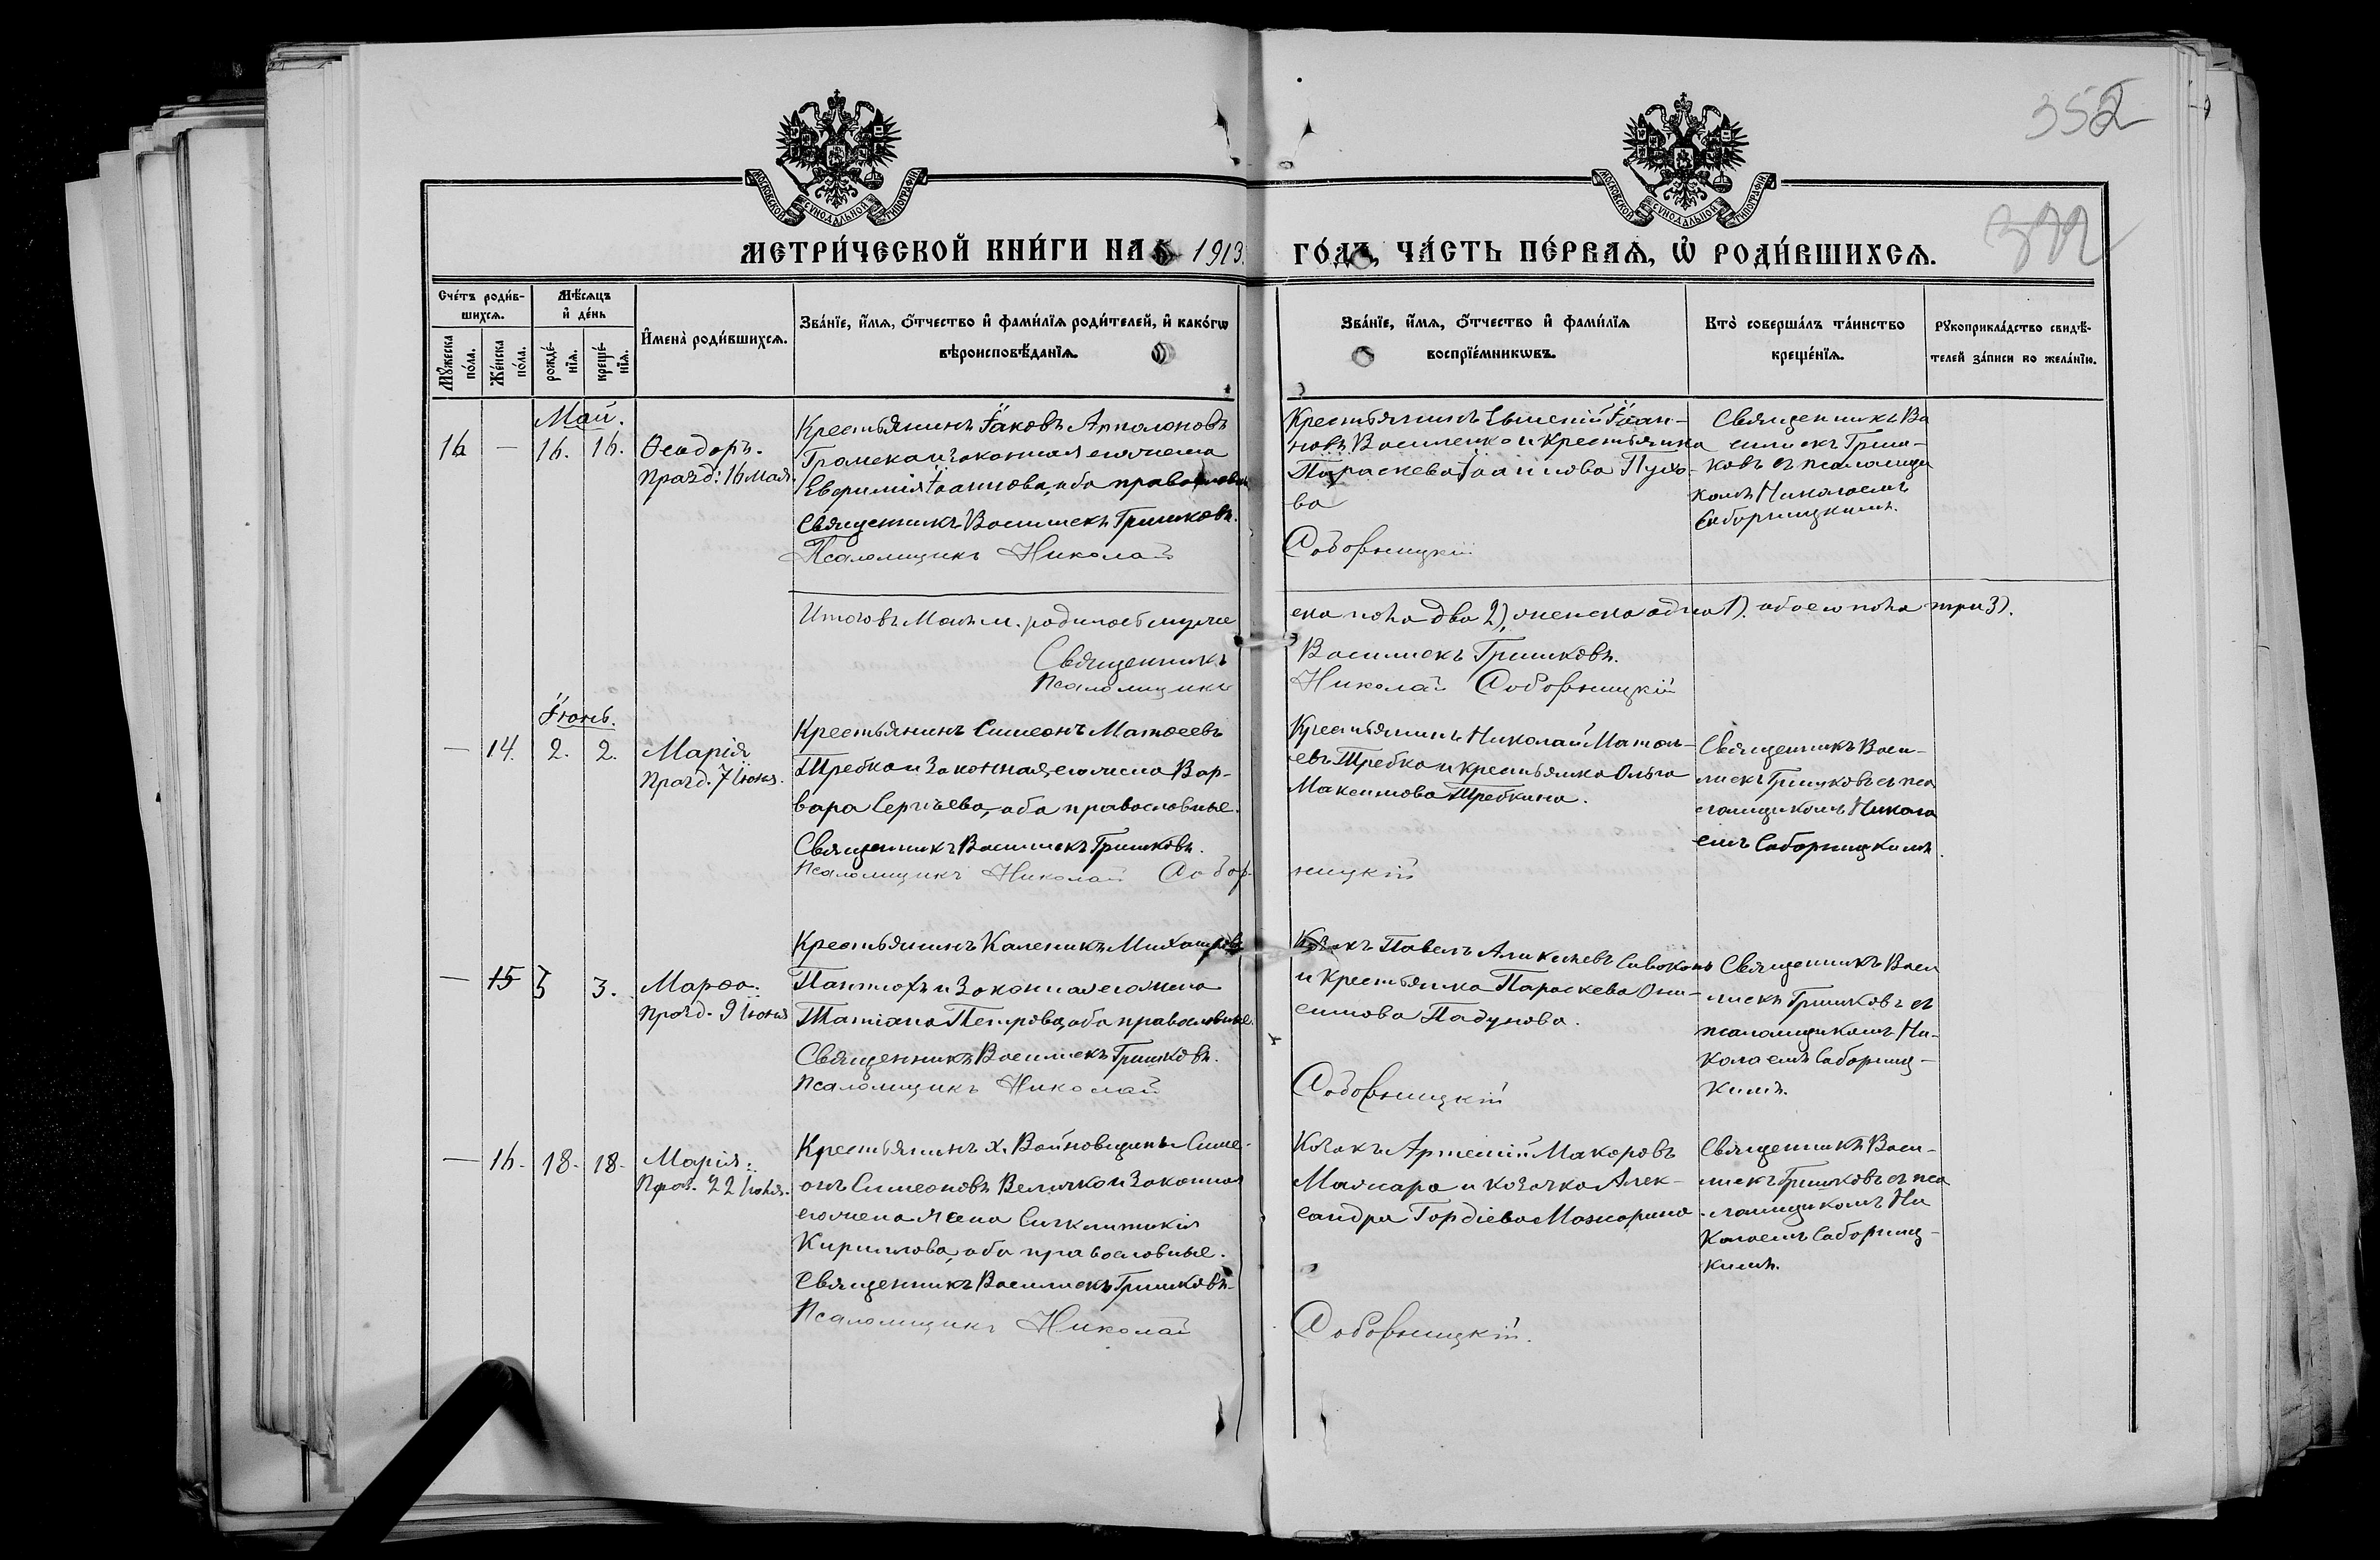 352
МОСКОВСКОЙ СУНОДАЛЬНОЙ ТИПОГРАФІИ
МОСКОВСКОЙ СУНОДАЛЬНОЙ ТИПОГРАФІИ
МЕТРИ́ЧЕСКОЙ КНИ́ГИ НА 1913. ГО́ДЪ, ЧА́СТЬ ПЕ́РВАѦ, Ѡ҆ РОДИ́ВШИХСѦ.
Сче́тъ роди́в-
шихсѧ.
Мꙋ́жеска по́ла.
Же́нска по́ла.
Мѣ́сѧцъ
и҆ де́нь
рожде́-
нїѧ.
креще́-
нїѧ.
И҆мена̀ роди́вшихсѧ.
Зва́нїе, и҆́мѧ, ѻ҆́тчество и҆ фами́лїѧ роди́телей, и҆ како́гѡ
вѣроисповѣ́данїѧ.
Зва́нїе, и҆́мѧ, ѻ҆́тчество и҆ фами́лїѧ
воспрїе́мникѡвъ.
Кто̀ соверша́лъ та́инство
креще́нїѧ.
Рꙋкоприкла́дство свидѣ́-
телей за́писи по жела́нїю.
Май.
16 — 16. 16. Ѳеодоръ.
Празд: 16 мая.
Крестьянинъ Іаковъ
и законная его жена
Іоаннова, оба православн
Священникъ Василискъ Гришковъ.
Псаломщикъ Николай
Крестьянинъ Евгеній Іоан-
новъ Василенко и Крестьянка
Параскева Іоаннова
ва
Соборницкій
Священникъ Ва
силискъ Гриш-
ковъ съ псаломщи
комъ Николаемъ
Соборницкимъ.
Итого въ Маѣ м. родилось муже
ска пола два 2), женска одна 1). обоего пола три 3).
Священникъ Василискъ Гришковъ.
Псаломщикъ Николай Соборницкій
Іюнь.
— 14. 2. 2. Марія
Празд. 7 Іюня.
Крестьянинъ Симеонъ Матѳеевъ
Требка и Законная его жена Вар-
вара Сергѣева, оба православные.
Священникъ Василискъ Гришковъ.
Псаломщикъ Николай Собор-
Крестьянинъ Николай Матѳе-
евъ Требка и крестьянка Ольга
Максимова Требкина.
ницкій
Священникъ Васи-
лискъ Гришковъ съ пса
ломщикомъ Никола
емъ Соборницкимъ.
— 15 3 3. Марѳа.
Празд. 9 Іюня
Крестьянинъ Каленикъ
и Законная его жена
Татіана Петрова, оба православные.
Священникъ Василискъ Гришковъ.
Псаломщикъ Николай
Козакъ Павелъ
и Крестьянка Параскева Они-
симова Падунова.
Соборницкій
Священникъ Васи
лискъ Гришковъ съ
псаломщикомъ Ни-
колаемъ Соборниц-
кимъ.
— 16. 18. 18. Марія.
Праз. 22 Іюля.
Крестьянинъ х. Войновщины Симе-
онъ Симеоновъ Величко и Законная
его жена Синклитикія
Кириллова, оба православные.
Священникъ Василискъ Гришковъ.
Псаломщикъ Николай
Козакъ Артемій Макаровъ
Мажара и козачка Алек-
сандра Гордіева Мажарина
Соборницкій.
Священникъ Васи-
лискъ Гришковъ съ пса
ломщикомъ Ни
колаемъ Соборниц-
кимъ.